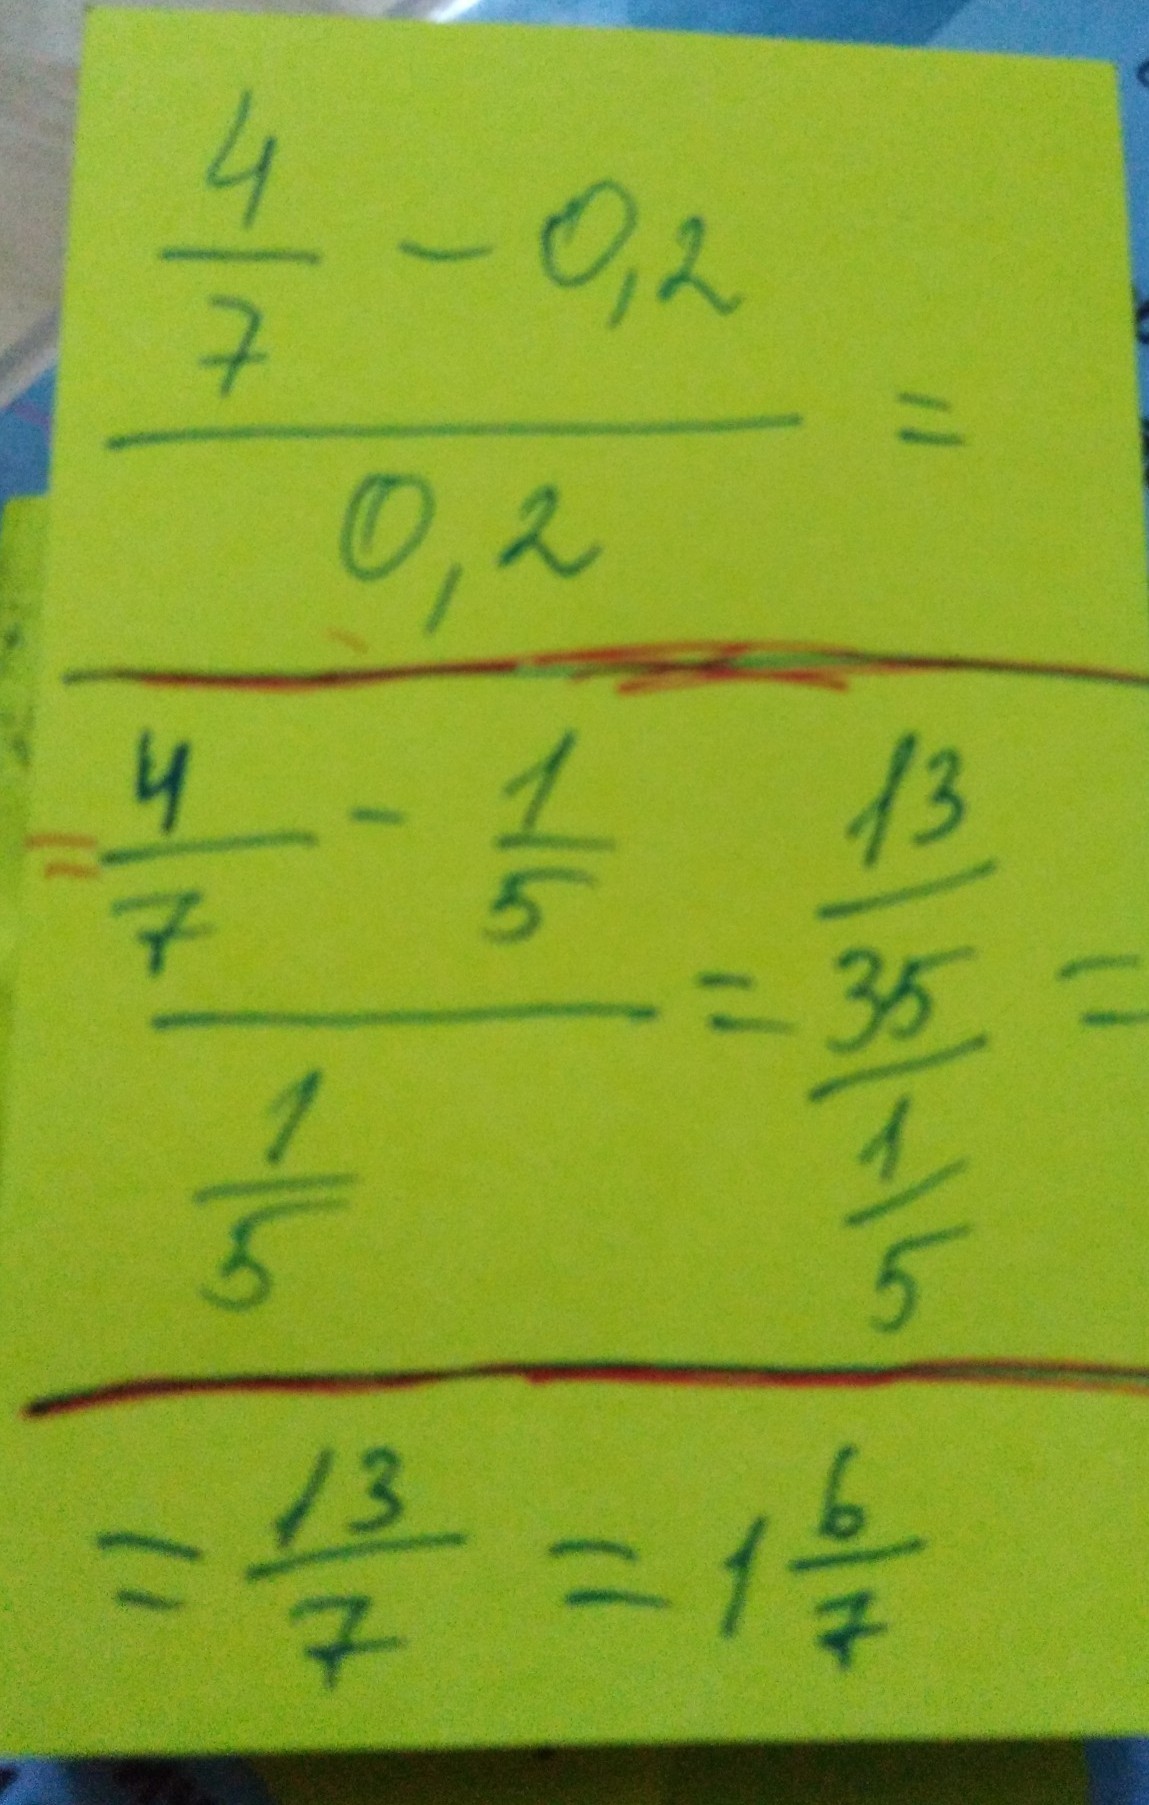 4/7 - 0,2
0,2 =
= 4/7 - 1/5
1/5 = 13/35
1/5 =
= 13/7 = 1 6/7